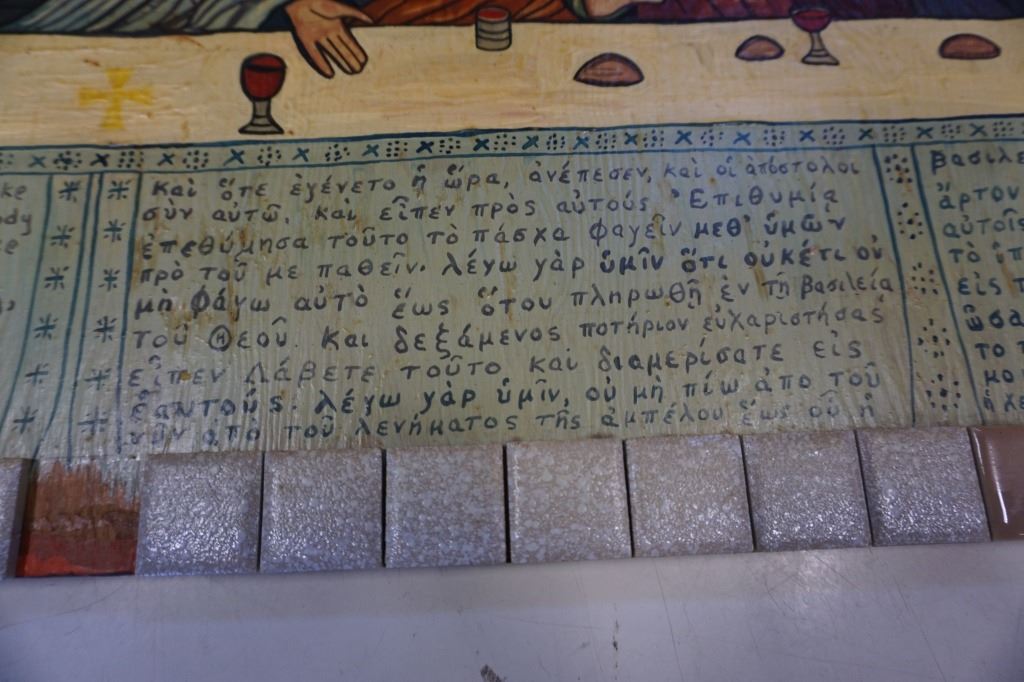 ke
ody
καὶ ὅτε ἐγένετο ἡ ὥρα, ἀνέπεσεν, καὶ οἱ ἀπόστολοι
σὺν αὐτῷ. καὶ εἶπεν πρὸς αὐτούς Ἐπιθυμίᾳ
ἐπεθύμησα τοῦτο τὸ πάσχα φαγεῖν μεθ' ὑμῶν
πρὸ τοῦ με παθεῖν. λέγω γὰρ ὑμῖν ὅτι οὐκέτι οὐ
μὴ φάγω αὐτὸ ἕως ὅτου πληρωθῇ ἐν τῇ βασιλείᾳ
τοῦ Θεοῦ. Καὶ δεξάμενος ποτήριον εὐχαριστήσας
εἶπεν Λάβετε τοῦτο καὶ διαμερίσατε εἰς
ἑαυτούς. λέγω γὰρ ὑμῖν, οὐ μὴ πίω ἀπὸ τοῦ
νῦν ἀπὸ τοῦ γενήματος τῆς ἀμπέλου ἕως οὗ ἡ
βασιλε
ἄρτον
αὐτοῖς
τὸ ὑπ
εἰς τ
ὡσα
το π
μο
ἡ χε